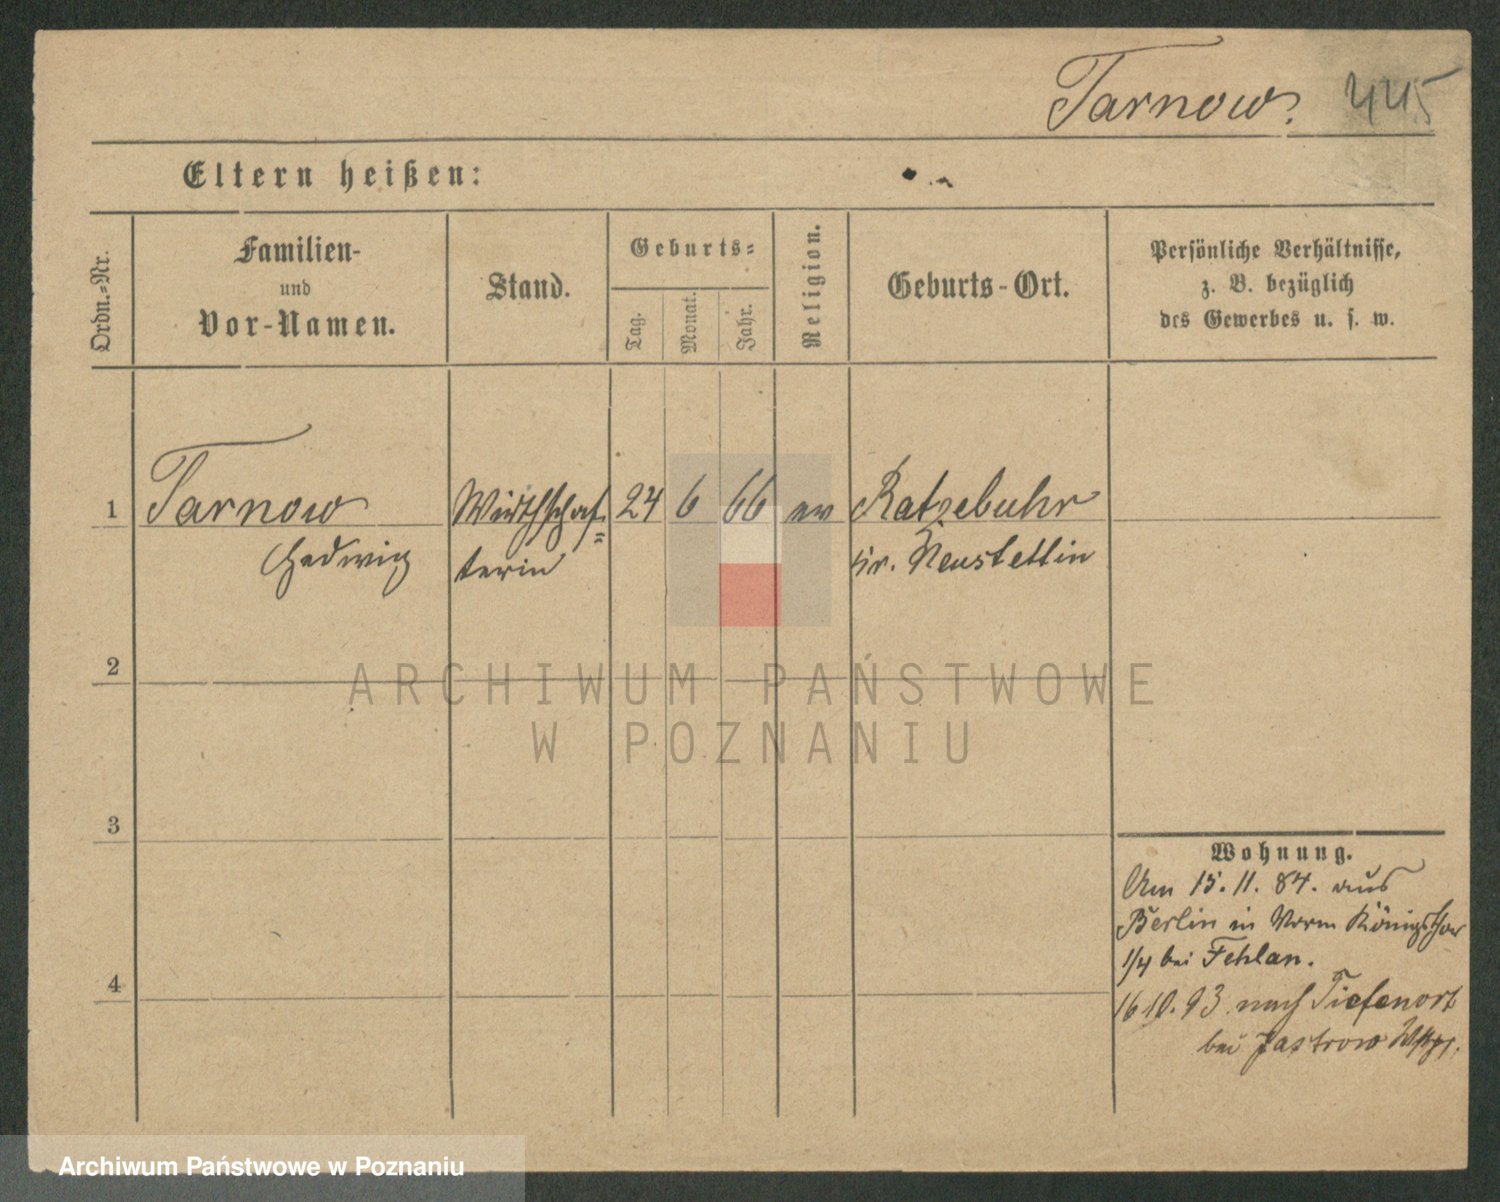 Tarnow. 445
Eltern heißen:
Ordn.=Nr.
Familien-
und
Vor-Namen.
Stand.
Geburts=
Tag.
Monat.
Jahr.
Religion.
Geburts-Ort.
Persönliche Verhältnisse,
z. B. bezüglich
des Gewerbes u. s. w.
1 Tarnow Wirthschaf= 24 6 66 ev Ratzebuhr
Hedwig terin Kr. Neustettin
2
3
4
Wohnung.
Am 15. 11. 84. aus
Berlin in Vorm Königsthor
1/4 bei Fehlan.
16 10. 93 nach Tiefenort
bei Jastrow Wstpr.
ARCHIWUM PAŃSTWOWE
W POZNANIU
Archiwum Państwowe w Poznaniu